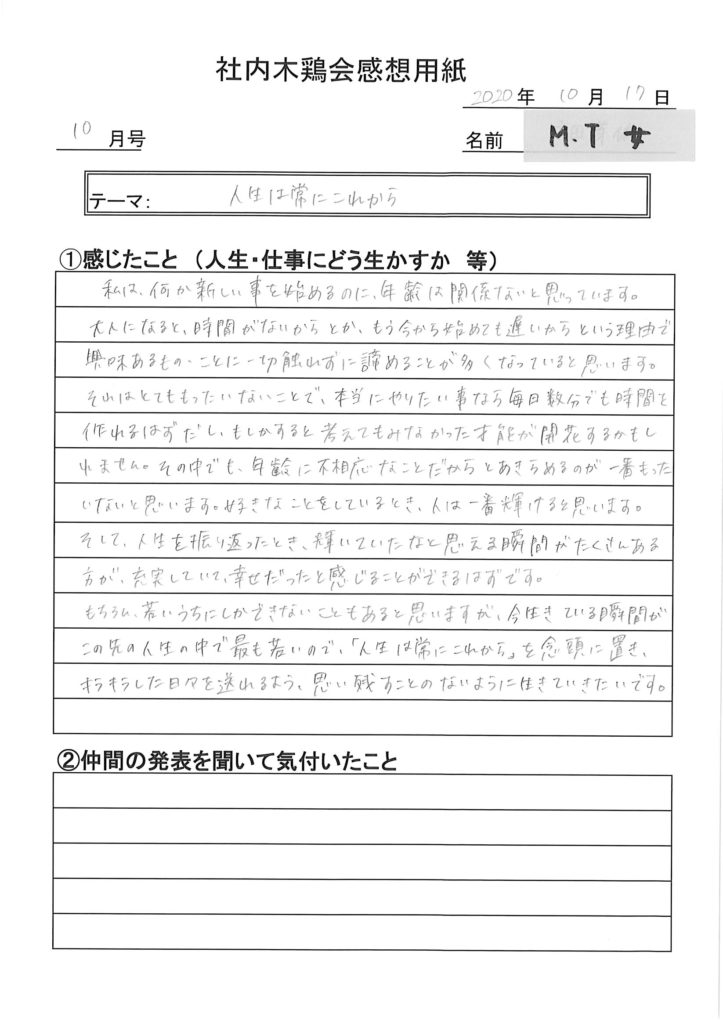 社内木鶏会感想用紙
2020年 10月 17日
10月号
名前 M.T 女
テーマ: 人生は常にこれから
①感じたこと (人生・仕事にどう生かすか 等)
私は、何か新しい事を始めるのに、年齢は関係ないと思っています。
大人になると、時間がないからとか、もう今から始めても遅いからという理由で
興味あるもの・ことに一切触れずに諦めることが多くなっていると思います。
それはとてももったいないことで、本当にやりたい事なら毎日数分でも時間を
作れるはずだし、もしかすると考えてもみなかった才能が開花するかもし
れません。その中でも、年齢に不相応なことだからとあきらめるのが一番もった
いないと思います。好きなことをしているとき、人は一番輝けると思います。
そして、人生を振り返ったとき、輝いていたなと思える瞬間がたくさんある
方が、充実していて、幸せだったと感じることができるはずです。
もちろん、若いうちにしかできないこともあると思いますが、今生きている瞬間が
この先の人生の中で最も若いので、「人生は常にこれから」を念頭に置き、
キラキラした日々を送れるよう、思い残すことのないように生きていきたいです。
②仲間の発表を聞いて気付いたこと